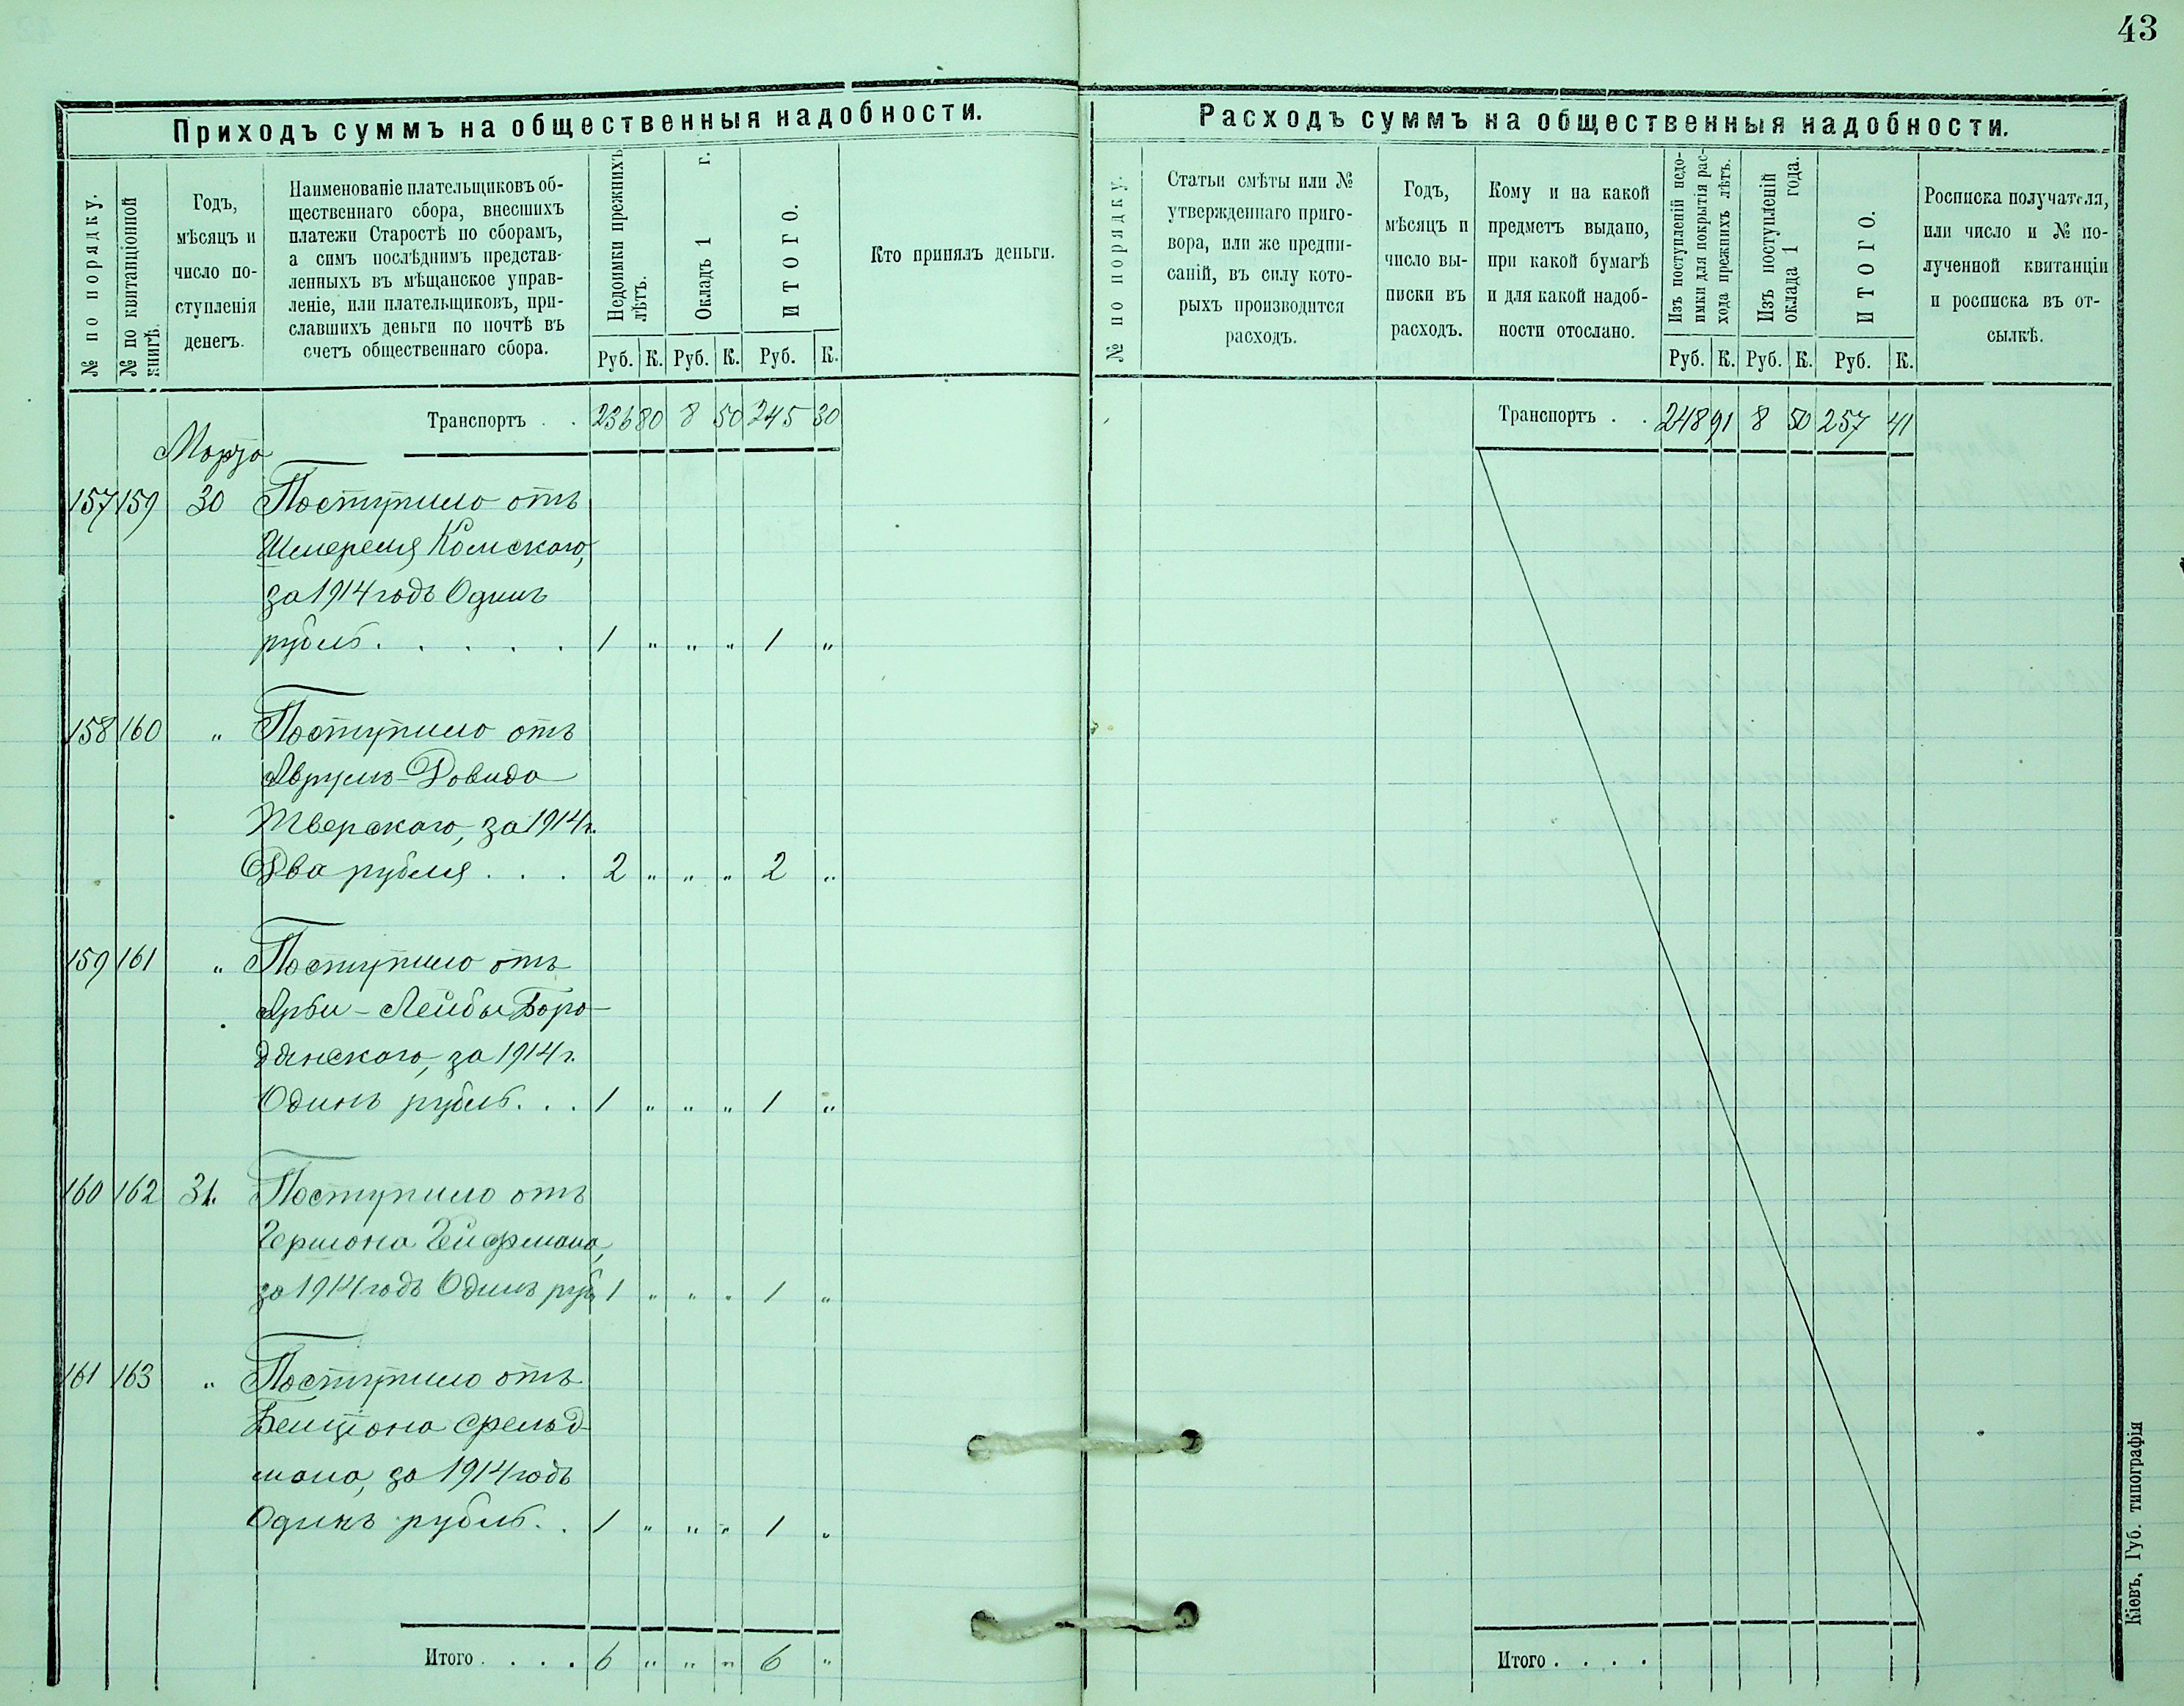 43
Приходъ суммъ на общественныя надобности.
№ по порядку.
№ по квитанціонной
книгѣ.
Годъ,
мѣсяцъ и
число по-
ступленія
денегъ.
Наименованіе плательщиковъ об-
щественнаго сбора, внесшихъ
платежи Старостѣ по сборамъ,
а симъ послѣднимъ представ-
ленныхъ въ мѣщанское управ-
леніе, или плательщиковъ, при-
славшихъ деньги по почтѣ въ
счетъ общественнаго сбора.
Недоимки прежнихъ
лѣтъ.
Окладъ 1 г.
ИТОГО.
Руб. К. Руб. К. Руб. К.
Кто принялъ деньги.
Транспортъ . . 236 80 8 50 245 30
Марта
157 159 30 Поступило отъ
Шмереля Комскаго,
за 1914 годъ Одинъ
рубль . . . . . 1 „ „ „ 1 „
158 160 „ Поступило отъ
Аврумъ-Довида
Тверскаго, за 1914 г.
Два рубля . . . 2 „ „ „ 2 „
159 161 „ Поступило отъ
-Лейбы Боро-
дянскаго, за 1914 г.
Одинъ рубль . . . 1 „ „ „ 1 „
160 162 31. Поступило отъ
Гершона Гейфмана,
за 1914 годъ Одинъ руб. 1 „ „ „ 1 „
161 163 „ Поступило отъ
Бенціона Фельд-
мана, за 1914 годъ
Одинъ рубль . . 1 „ „ „ 1 „
Итого . . . . 6 „ „ „ 6 „
Расходъ суммъ на общественныя надобности.
№ по порядку.
Статьи смѣты или №
утвержденнаго приго-
вора, или же предпи-
саній, въ силу кото-
рыхъ производится
расходъ.
Годъ,
мѣсяцъ и
число вы-
писки въ
расходъ.
Кому и на какой
предметъ выдано,
при какой бумагѣ
и для какой надоб-
ности отослано.
Изъ поступленій недо-
имки для покрытія рас-
хода прежнихъ лѣтъ.
Изъ поступленій
оклада 1 года.
ИТОГО.
Руб. К. Руб. К. Руб. К.
Росписка получателя,
или число и № по-
лученной квитанціи
и росписка въ от-
сылкѣ.
Транспортъ . . 248 91 8 50 257 41
Итого . . . .
Кіевъ, Губ. типографія